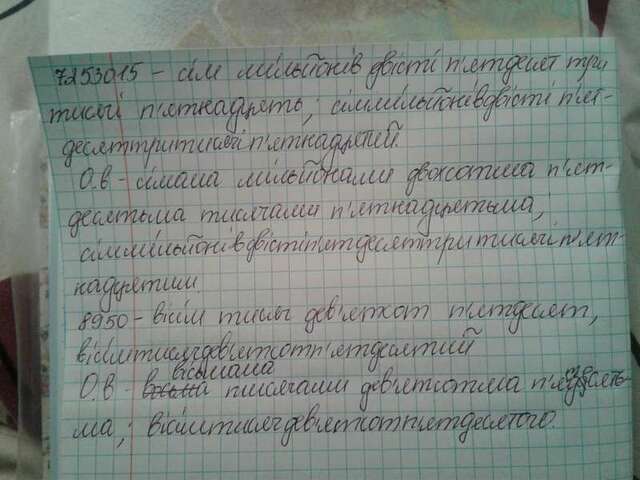 7253015 – сім мільйонів двісті п'ятдесят три
тисячі п'ятнадцять; сіммільйонівдвістіп'ят-
десяттритисячіп'ятнадцятий.
О.в – сімама мільйонами двомастами п'ят-
десятьма тисячами п'ятнадцятьма;
сіммільйонівдвістіп'ятдесяттритисячіп'ят-
надцятим.
8950 – вісім тисяч дев'ятсот п'ятдесят,
вісімтисячдев'ятсотп'ятдесятий
вісьмама
О.в – тисячами дев'ятистами п'ятдесять-
ма; вісімтисячдев'ятсотп'ятдесятого.